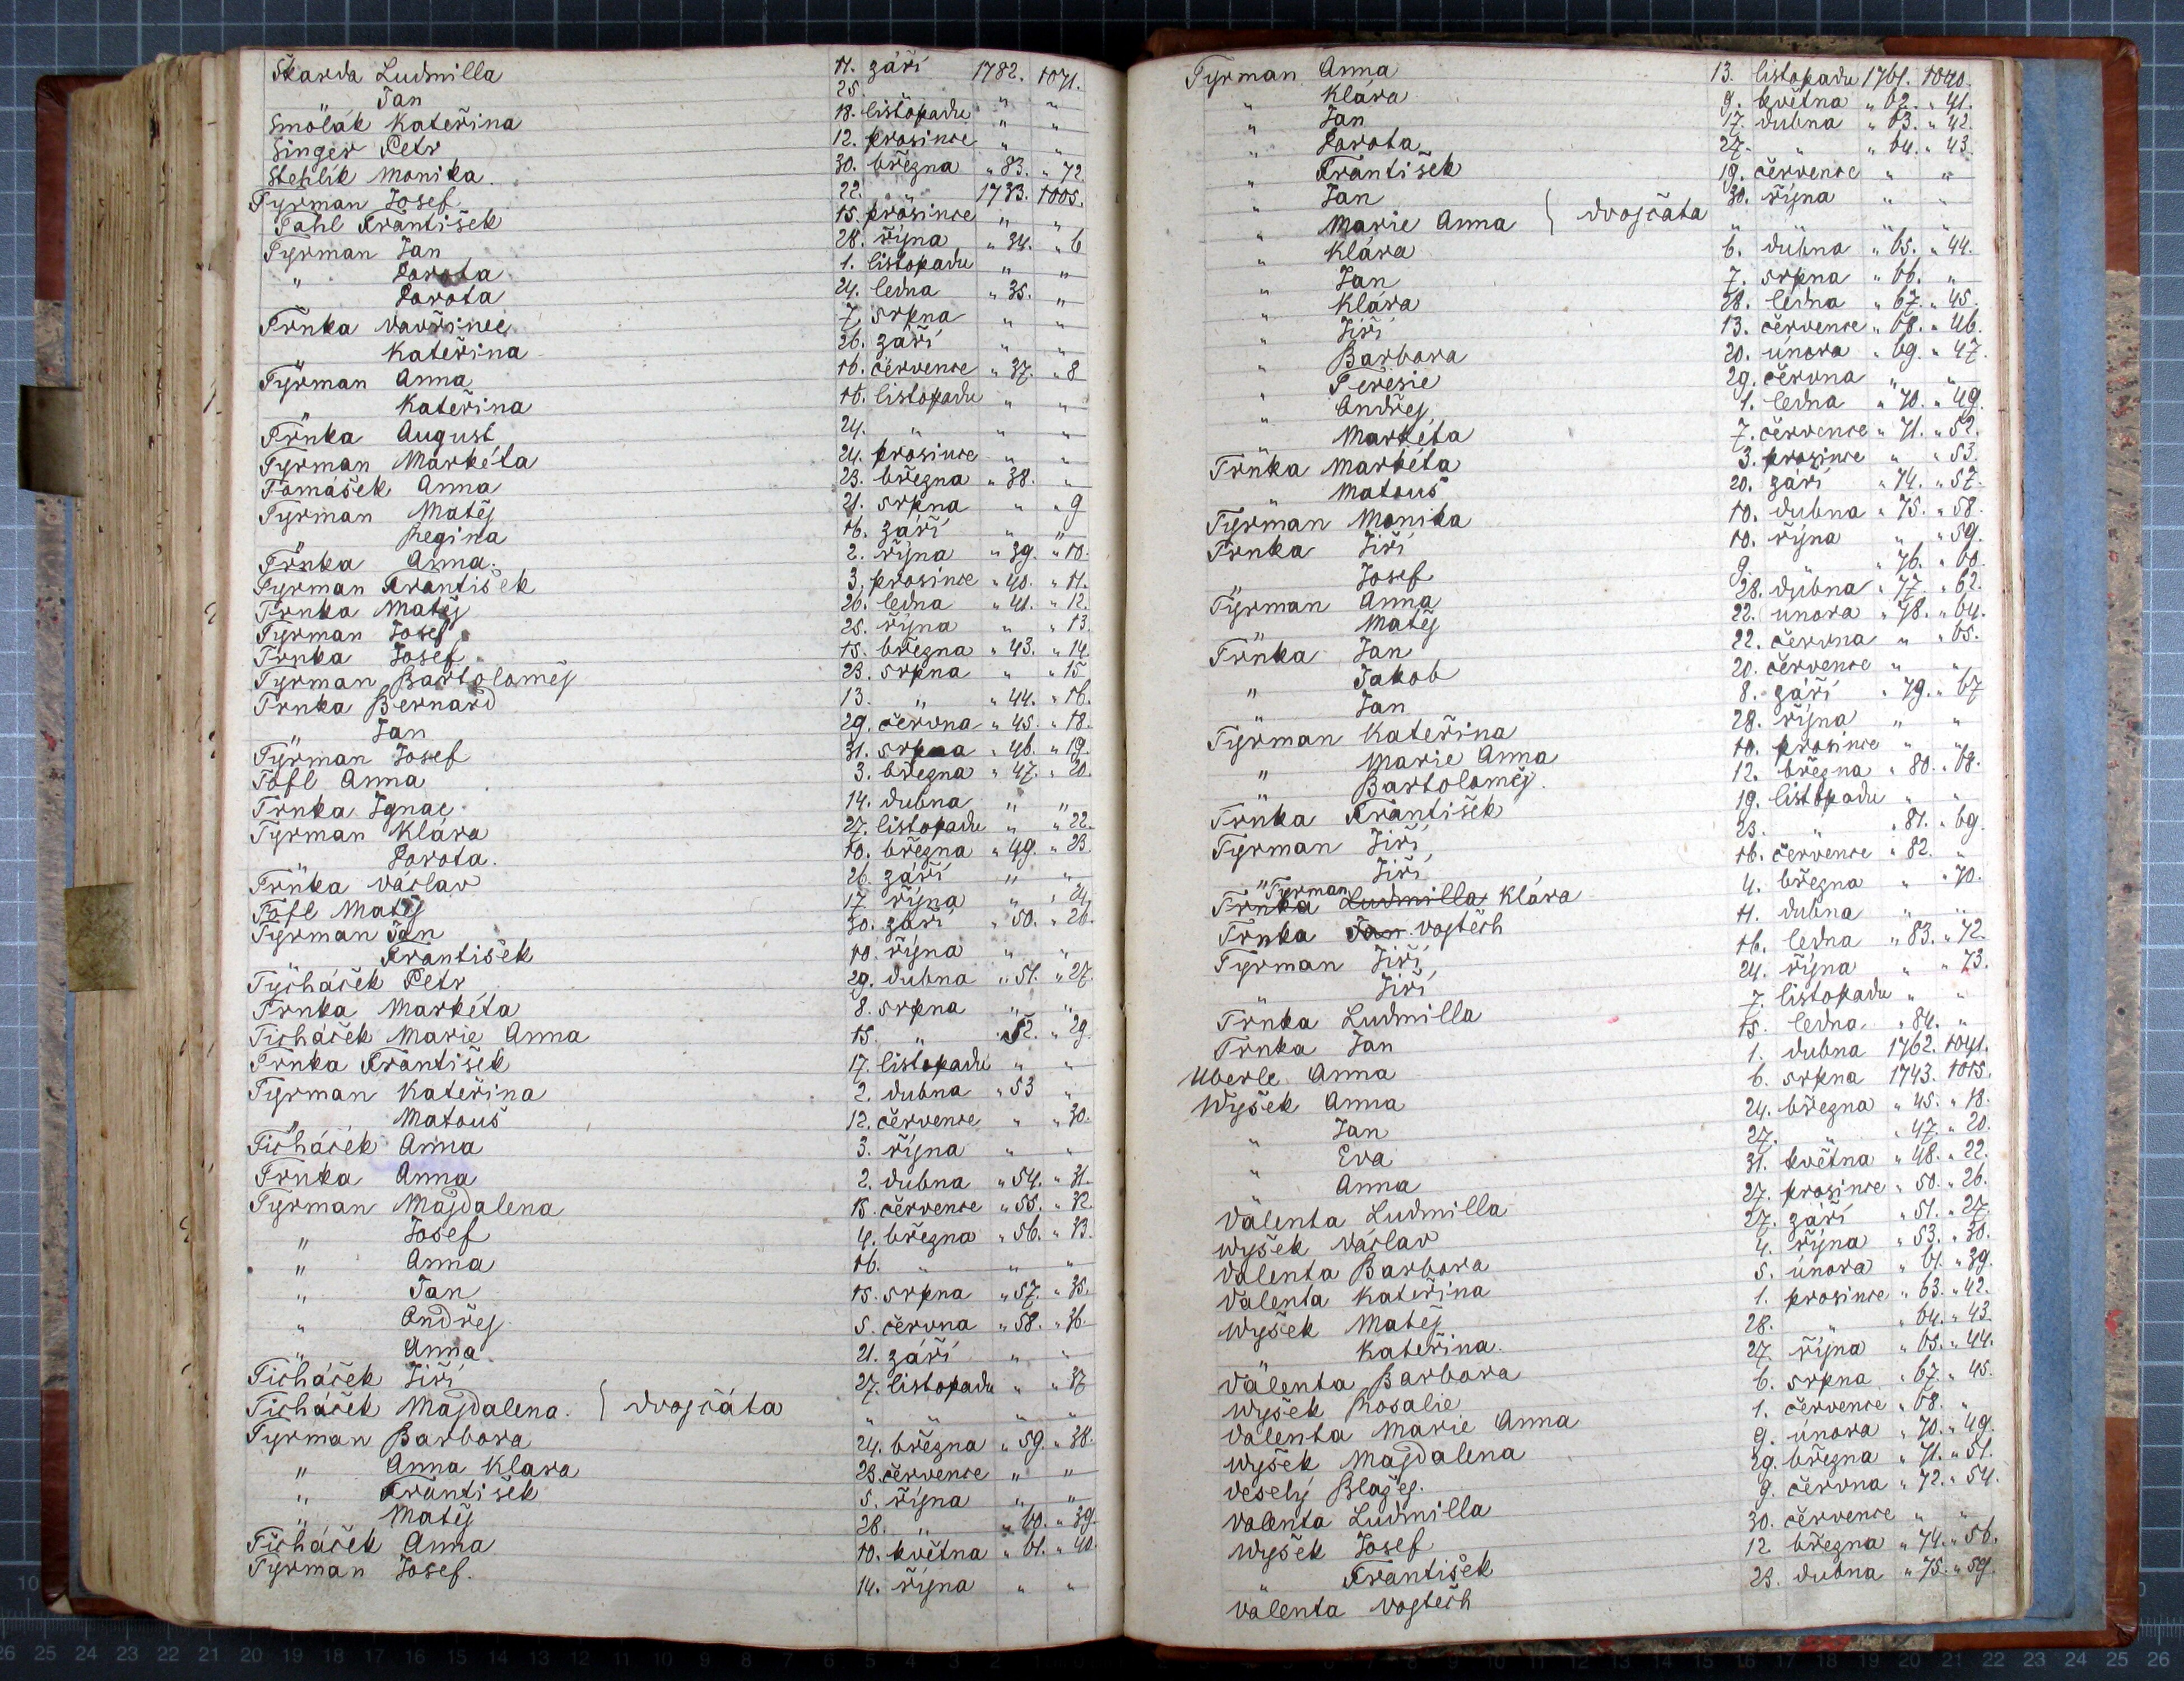 Škarda Ludmilla 11. září 1782. 1071.
" Jan 25. " " "
Smolák Kateřina 18. listopadu " "
Singer Petr 12. prosince " "
Stehlík Monika. 30. března " 83. " 72
Tyrman Josef 22. " 1733. 1005.
Tahl František 15. prosince " "
Tyrman Jan 28. října " 34. " 6
" Dorota 1. listopadu " "
" Dorota 24. ledna " 35. "
Trnka Vavřinec 7. srpna " "
" Kateřina 26. září " "
Tyrman Anna 16. července " 37. " 8
" Kateřina 16. listopadu " "
Trnka August 24. " " "
Tyrman Markéta 24. prosince " "
Tomášek Anna 23. března " 38. "
Tyrman Matěj 21. srpna " " 9
" Regina 16. září " "
Trnka Anna. 2. října " 39. " 10.
Tyrman František 3. prosince " 40. " 11.
Trnka Matěj 26. ledna " 41. " 12.
Tyrman Josef 25. října " " 13
Trnka Josef. 15. března " 43. " 14
Tyrman Bartoloměj 23. srpna " " 15
Trnka Bernard 13. " " 44. " 16.
" Jan 29. června " 45. " 18.
Tyrman Josef 31. srpna " 46. " 19.
Tofl Anna 3. března " 47. " 20.
Trnka Ignac 14. dubna " "
Tyrman Klára 27. listopadu " " 22.
" Dorota. 10. března " 49. " 23.
Trnka Václav 26. září " "
Tofl Matěj 17 října " " 24
Tyrman Jan 30. září " 50. " 26.
František 10. října " "
Tycháček Petr 29. dubna " 51. " 27.
Trnka Markéta 8. srpna " "
Ticháček Marie Anna 15. " " 52. " 29.
Trnka František 17. listopadu " "
Tyrman Kateřina 2. dubna " 53 "
" Matouš 12. července " " 30.
Ticháček Anna 3. října " "
Trnka Anna 2. dubna " 54. " 31.
Tyrman Magdalena 15. července " 55. " 32.
" Josef 4. března " 56. " 33.
" Anna 16. " " "
" Jan 15. srpna " 57. " 35.
" Andřej 5. června " 58. " 36.
" Anna 21. září " "
Ticháček Jiří 27. listopadu " " 37
Ticháček Magdalena. } dvojčáta " " " "
Tyrman Barbora 24. března " 59. " 38.
" Anna Klara 23. července " "
" František 5. října " "
" Matěj 28. " " 60. " 39.
Ticháček Anna 10. května " 61. " 40.
Tyrman Josef. 14. října " "
Tyrman Anna 13. listopadu 1761. 1040.
" Klára 9. května " 62. " 41.
" Jan 17. dubna " 63. " 42.
" Dorota 27. " " 64. " 43.
" František 19. července " "
" Jan 30. října " "
" Marie Anna } dvojčáta " " " "
" Klára 6. dubna " 65. " 44.
" Jan 7. srpna " 66. "
" Klára 28. ledna " 67. " 45.
" Jiří 13. července " 68. " 46.
" Barbora 20. února " 69. " 47.
" Teresie 29. června " "
" Andřej 1. ledna " 70. " 49.
" Markéta 7. července " 71. " 52.
Trnka Markéta 3. prosince " " 53.
" Matouš 20. září " 74. " 57.
Tyrman Monika 10. dubna " 75. " 58.
Trnka Jiří 10. října " " 59.
" Josef 9. " " 76. " 60.
Tyrman Anna 28. dubna " 77. " 62.
Matěj 22. února " 78. " 64.
Trnka Jan 22. června " " 65.
" Jakob 20. července " "
" Jan 8. září " 79. " 67
Tyrman Kateřina 28. října " "
" Marie Anna 11. prosince " "
" Bartoloměj. 12. března " 80. " 68.
Trnka František 19. listopadu " "
Tyrman Jiří 23. " " 81. " 69.
" Jiří 16. července " 82. "
Tyrman
Trnka Ludmilla Klára 4. března " " 70.
Trnka Jan Vojtěch 11. dubna " "
Tyrman Jiří 16. ledna " 83. " 72.
" Jiří 24. října " " 73.
Trnka Ludmilla 7. listopadu " "
Trnka Jan 15. ledna " 84. "
Uberle Anna 1. dubna 1762. 1041.
Wyšek Anna 6. srpna 1743. 1015.
" Jan 24. března " 45. " 18.
" Eva 27. " " 47. " 20.
" Anna 31. května " 48. " 22.
Valenta Ludmilla 27. prosince " 50. " 26.
Wyšek Václav 27. září " 51. " 27.
Valenta Barbora 4. října " 53. " 30.
Valenta Kateřina 5. února " 61. " 39.
Wyšek Matěj 1. prosince " 63. " 42.
" Kateřina. 28. " " 64. " 43
Valenta Barbora 27. října " 65. " 44.
Wyšek Rosalie 6. srpna " 67. " 45.
Valenta Marie Anna 1. července " 68. "
Wyšek Magdalena 9. února " 70. " 49.
Veselý Blažej. 29. března " 71. " 51.
Valenta Ludmilla 9. června " 72. " 54.
Wyšek Josef 30. července " "
" František 12 března " 74. " 56.
Valenta Vojtěch 23. dubna " 75. " 59.